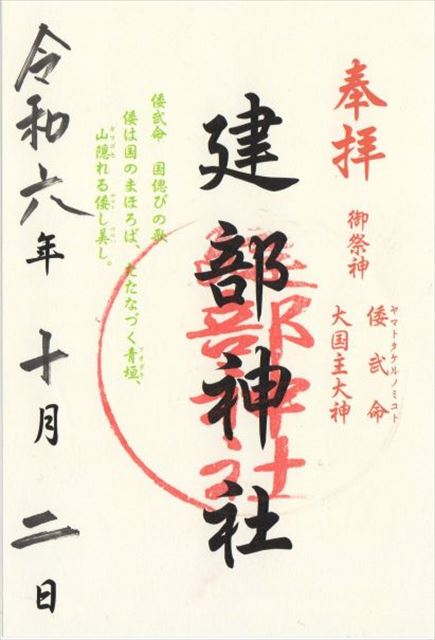 奉拝
御祭神
ヤマトタケルノミコト
倭武命
大国主大神
建部神社
建部神社
倭武命 国偲びの歌
倭は国のまほろば、たたなづく青垣、
アオガキ
山隠れる倭し美し。
ヤマゴモ
令和六年 十月 二日